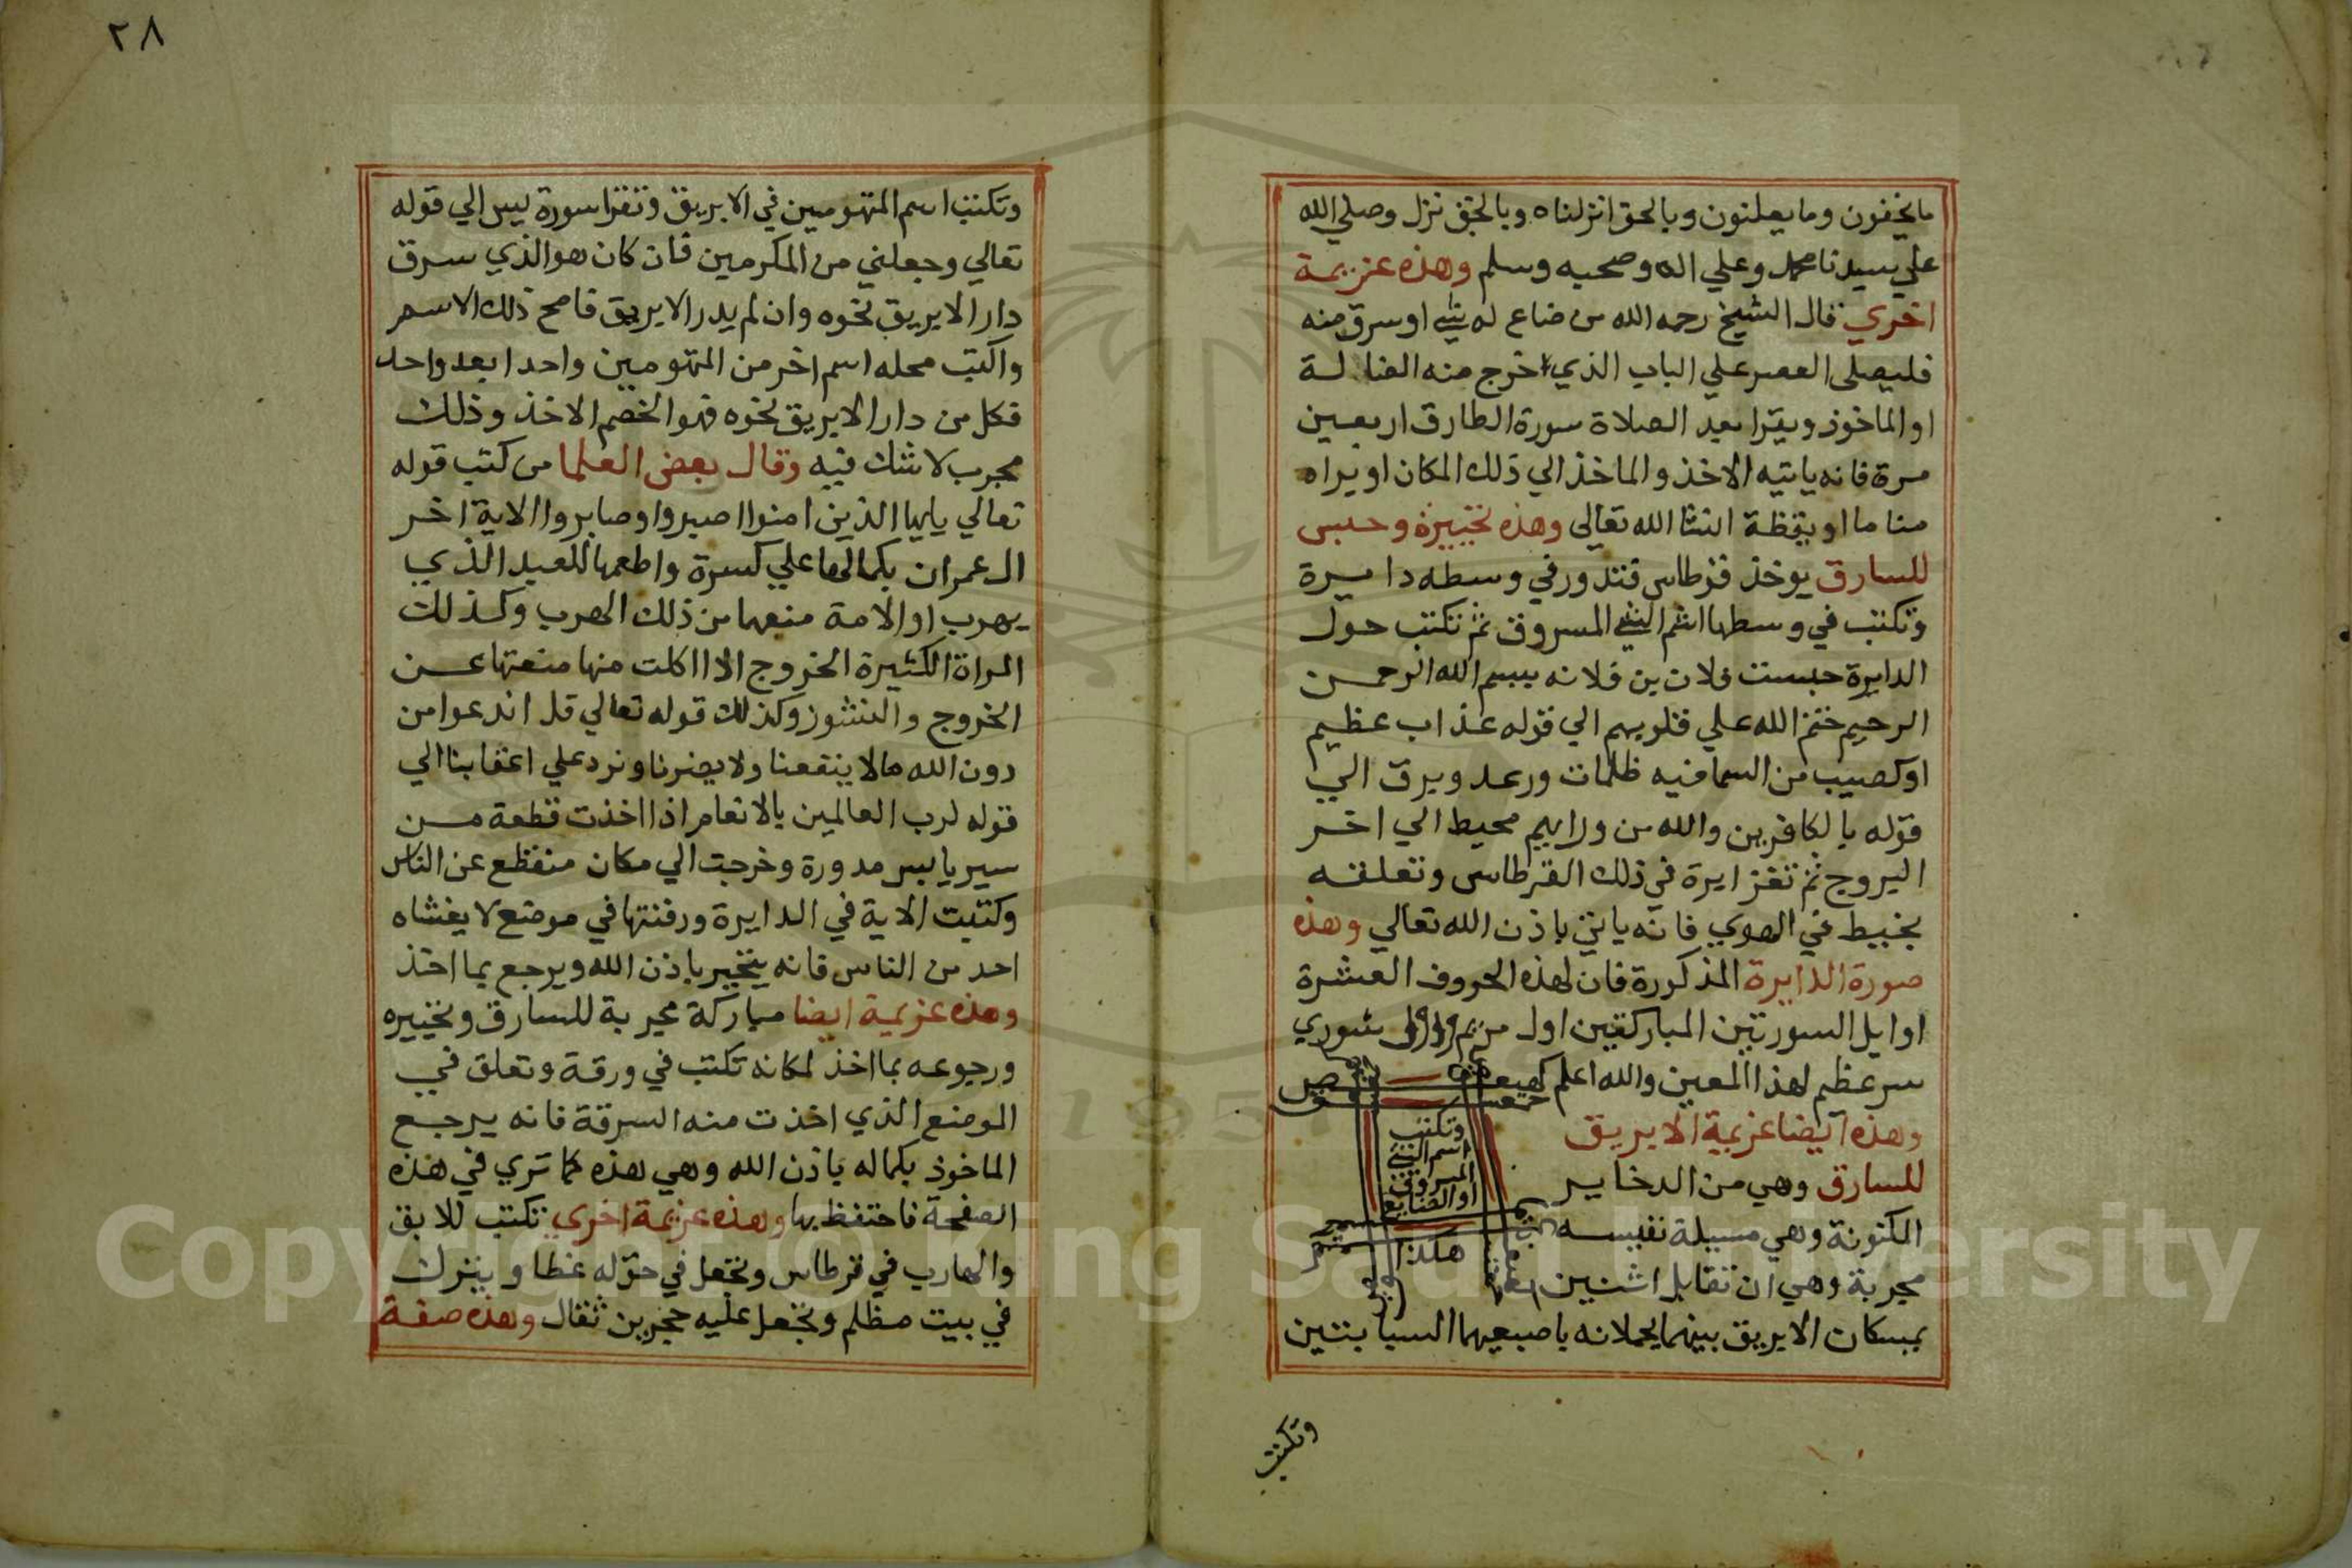 ما يخفون وما يعلنون وبالحق انزلناه وبالحق نزل وصلي الله
علي سيدنا محمد وعلي اله وصحبه وسلم وهذه عزيمة
اخري قال الشيخ رحمه الله من ضاع له شي او سرق منه
فليصلى العصر علي الباب الذي اخرج منه الضالة
او الماخوذ ويقرا بعد الصلاة سورة الطارق اربعين
مرة فانه ياتيه الاخذ والماخذ الي ذلك المكان او يراه
مناما او يقظة انشا الله تعالى وهذه تخييرة وحبس
للسارق يوخذ قرطاس فتدور في وسطه دايرة
وتكتب في وسطها اسم الشي المسروق ثم تكتب حول
الدايرة حبست فلان بن فلانه ببسم الله الرحمن
الرحيم ختم الله علي قلوبهم الي قوله عذاب عظيم
او كصيب من السما فيه ظلمات ورعد وبرق الي
قوله بالكافرين والله من ورايهم محيط الي اخر
البروج ثم تغز ايرة في ذلك القرطاس وتعلقه
بخيط في الهوي فانه ياتي باذن الله تعالي وهذه
صورة الدايرة المذكورة فان لهذه الحروف العشرة
اوايل السورتين المباركتين اول مريم واول شوري
سر عظيم لهذا المعين والله اعلم كهيعص
حمعسق
وهذه ايضا عزيمة الابريق
للسارق وهي من الدخاير
المكنونة وهي مسيلة نفيسه
مجربة وهي ان تقابل اثنين
يمسكان الابريق بينهما يحملانه باصبعيهما السبابتين
وتكتب
اسم الشي
المسروق
او الضايع
هكذا
وتكتب
٢٨
وتكتب اسم المتهومين في الابريق وتقرا سورة يس الي قوله
تعالي وجعلني من المكرمين فان كان هو الذي سرق
دار الابريق نحوه وان لم يدر الابريق فامح ذلك الاسم
واكتب محله اسم اخر من المتهومين واحدا بعد واحد
فكل من دار الابريق نحوه فهو الخصم الاخذ وذلك
مجرب لا شك فيه وقال بعض العلما من كتب قوله
تعالي يايها الذين امنوا اصبروا وصابروا الاية اخر
ال عمران بكمالها علي كسرة واطعمها للعبد الذي
يهرب او الامة منعهما من ذلك الهرب وكذلك
المراة الكثيرة الخروج اذا اكلت منها منعتها عن
الخروج والنشوز وكذلك قوله تعالي قل اندعوا من
دون الله مالا ينفعنا ولا يضرنا ونرد علي اعقابنا الي
قوله لرب العالمين بالانعام اذا اخذت قطعة من
سير يابس مدورة وخرجت الي مكان منقطع عن الناس
وكتبت الاية في الدايرة ودفنتها في موضع لا يغشاه
احد من الناس فانه يتخير باذن الله ويرجع بما اخذ
وهذه عزيمة ايضا مباركة مجربة للسارق وتخييره
ورجوعه بما اخذ لمكانه تكتب في ورقة وتعلق في
الموضع الذي اخذت منه السرقة فانه يرجع
الماخوذ بكماله باذن الله وهي هذه كما تري في هذه
الصفحة فاحتفظ بها وهذه عزيمة اخري تكتب للابق
والهارب في قرطاس وتجعل في حوله غطا ويترك
في بيت مظلم وتجعل عليه حجرين ثقال وهذه صفة
Copyright © King Saud University
1957